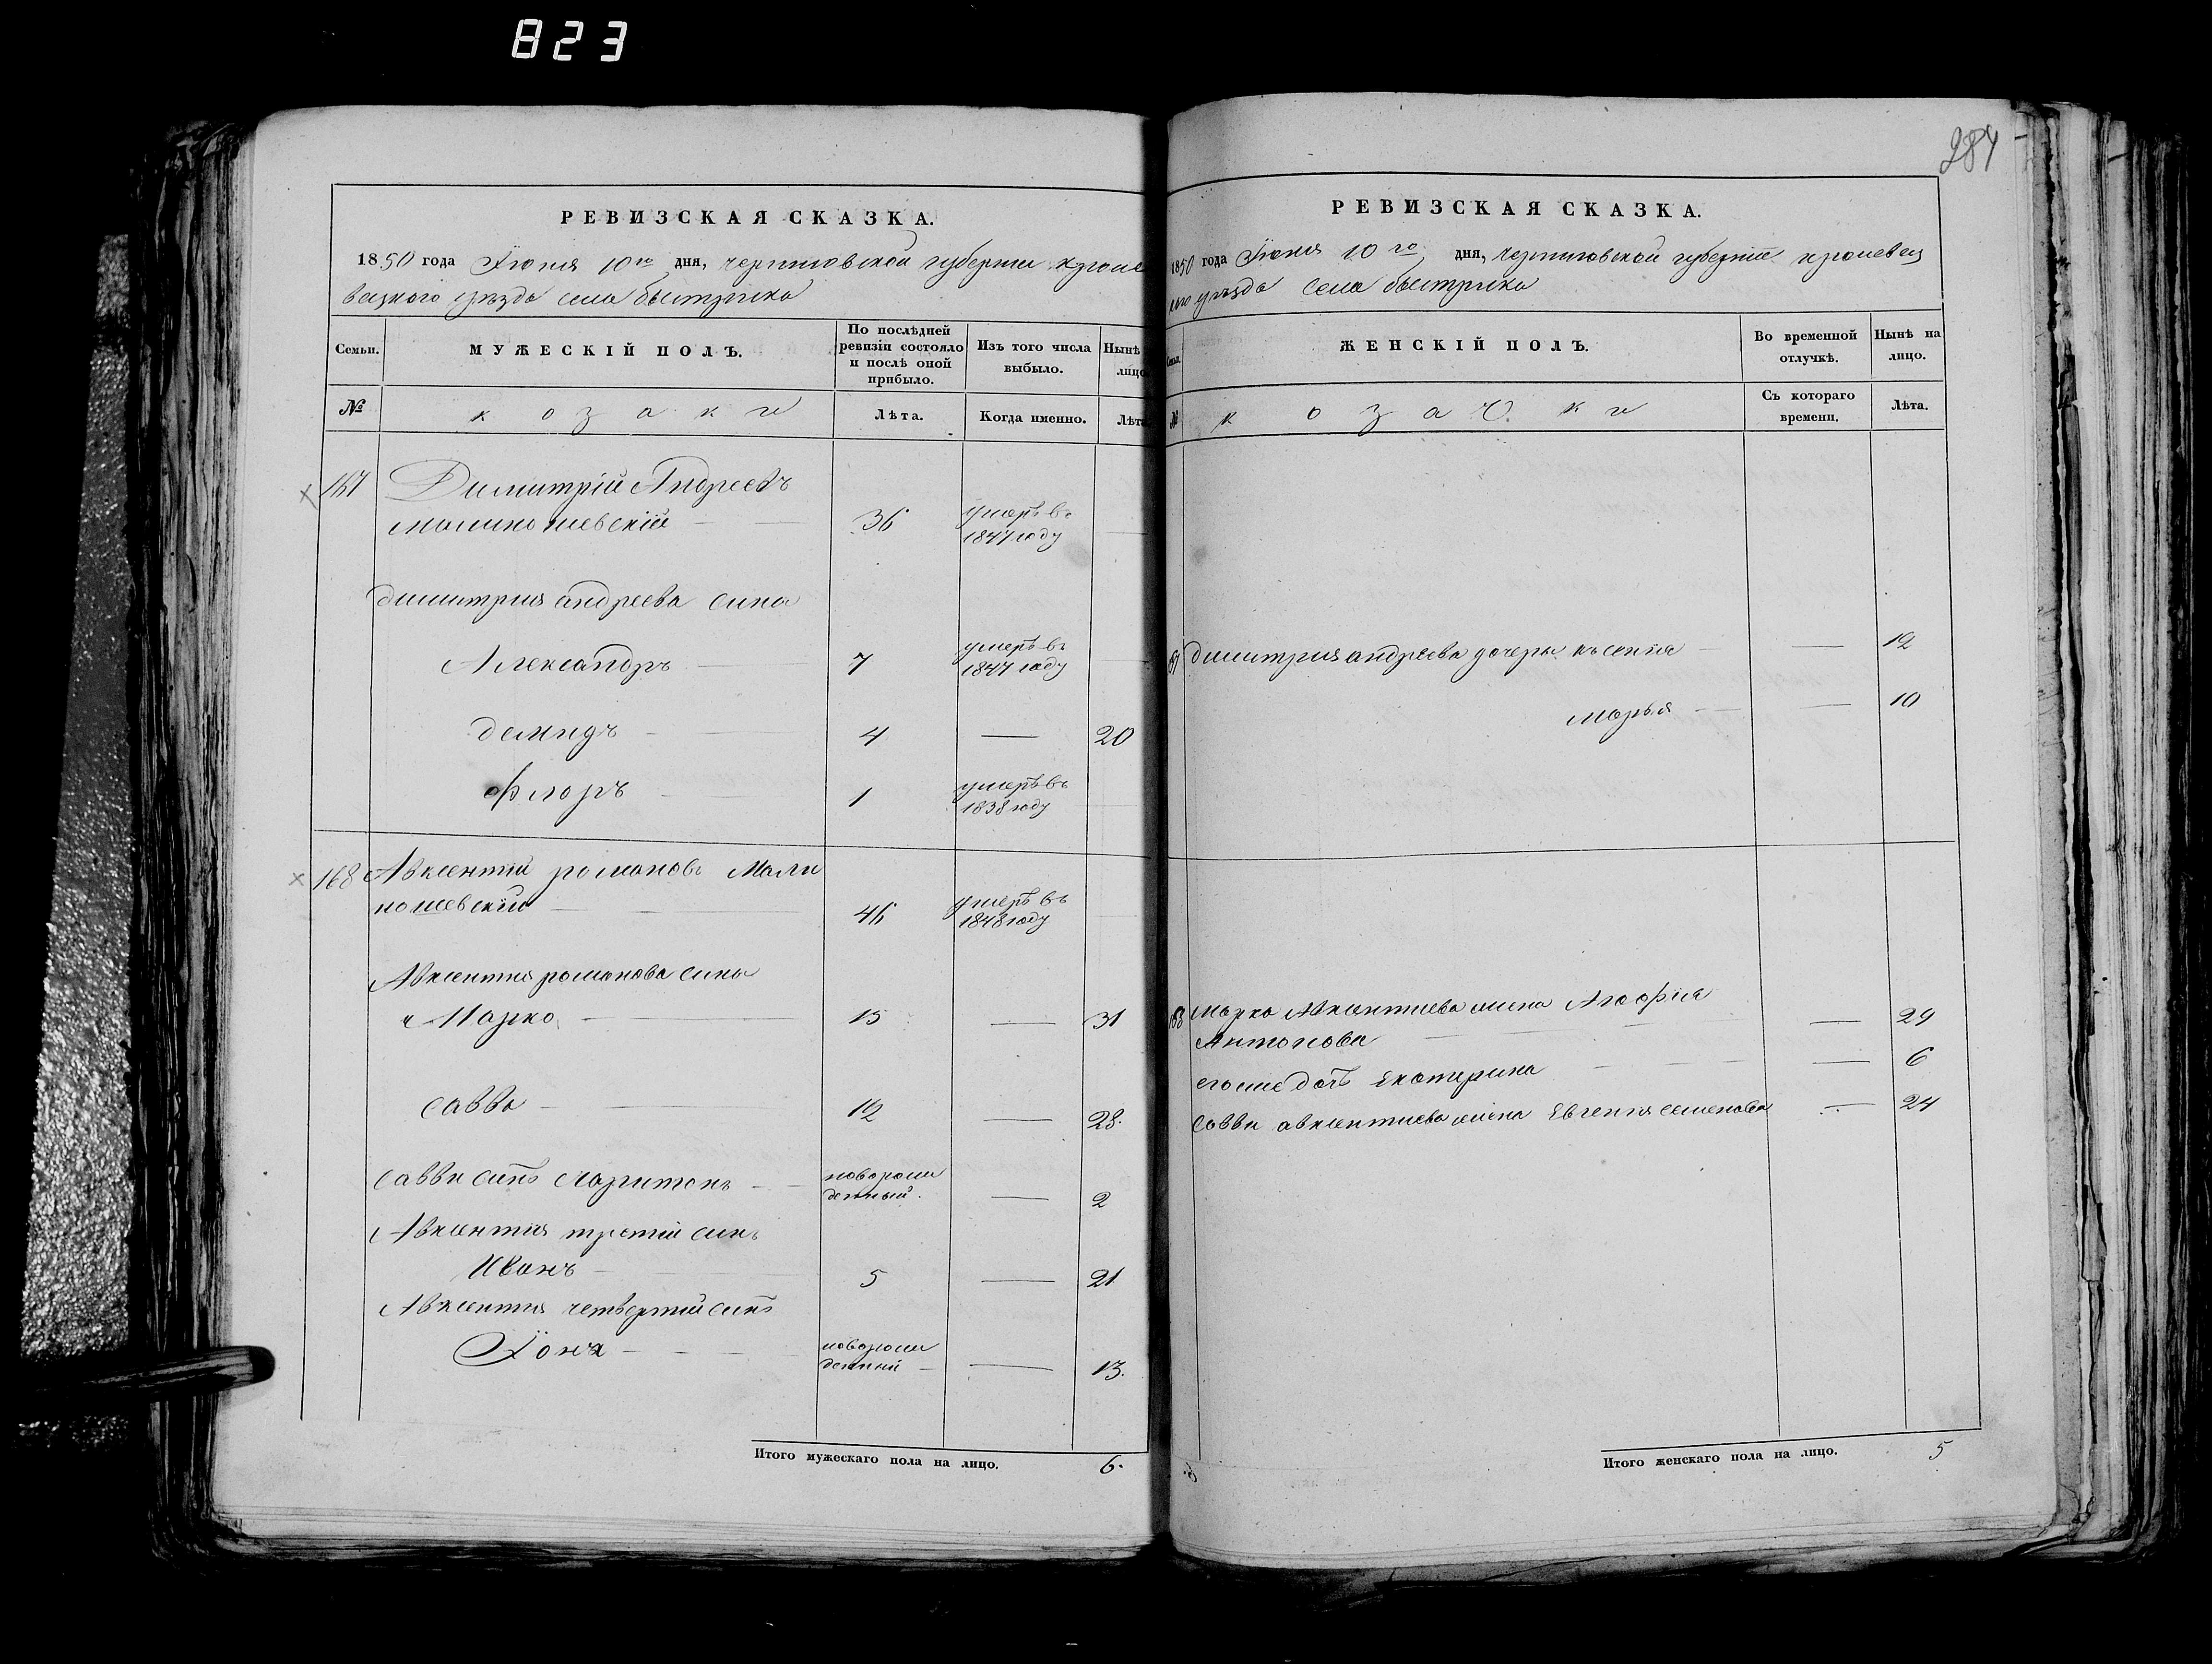 823
РЕВИЗСКАЯ СКАЗКА.
1850 года Іюня 10го дня, черниговской губерніи кроле
вецкого уѣзда села быстрика
Семьи.
МУЖЕСКІЙ ПОЛЪ.
По послѣдней
ревизіи состояло
и послѣ оной
прибыло.
Изъ того числа
выбыло.
Нынѣ
лицо
№
козаки
Лѣта.
Когда именно.
Лѣта
167 Димитрій Андреевъ
малиношевскій 36 умеръ въ
1847 году
димитрия андреева сина
Александръ 7 умеръ въ
1847 году
демидъ 4 — 20
флоръ 1 умеръ въ
1838 году
168 Авксентий романовъ Мали
ношевский 46 умеръ въ
1848 году
Авксентия романова сины
Марко 15 — 31
савва 12 — 28.
саввы синъ харитонъ новорож
денный. — 2
Авксентия третій синъ
Иванъ 5 — 21
Авксентия четвертій синъ
Іона новорож
денний — 13.
Итого мужескаго пола на лицо. 6.
284
РЕВИЗСКАЯ СКАЗКА.
1850 года Іюня 10го дня, черниговской губерніи кролевец
кого уѣзда села быстрика
Семьи.
ЖЕНСКІЙ ПОЛЪ.
Во временной
отлучкѣ.
Нынѣ на
лицо.
№
козачки
Съ котораго
времени.
Лѣта.
димитрия андреева дочери ксения — 12
марья — 10
168 марка Авксентиева жена Агафія
Антонова — 29
егоже дочъ екатерина — 6
саввы авксентиева жена Евгения семенова — 24
Итого женскаго пола на лицо. 5